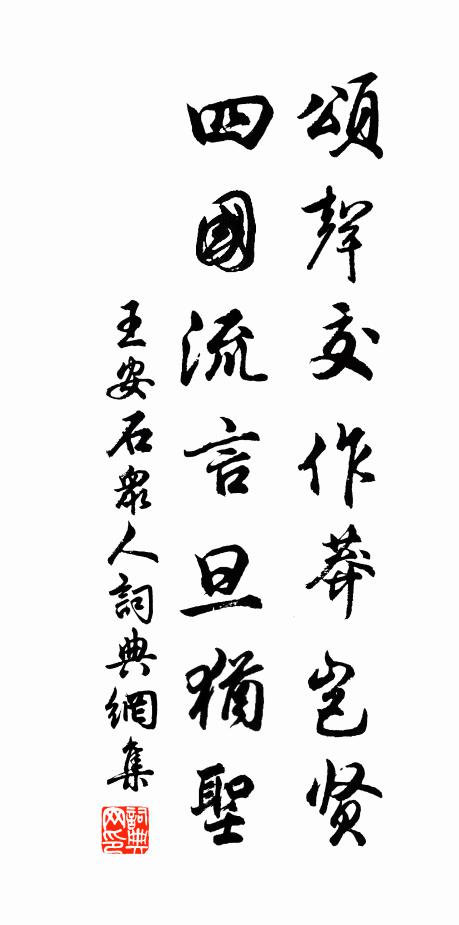 頌聲交作莽豈贤
四國流言旦猶聖
王安石眾人詞典網集
詞典网印